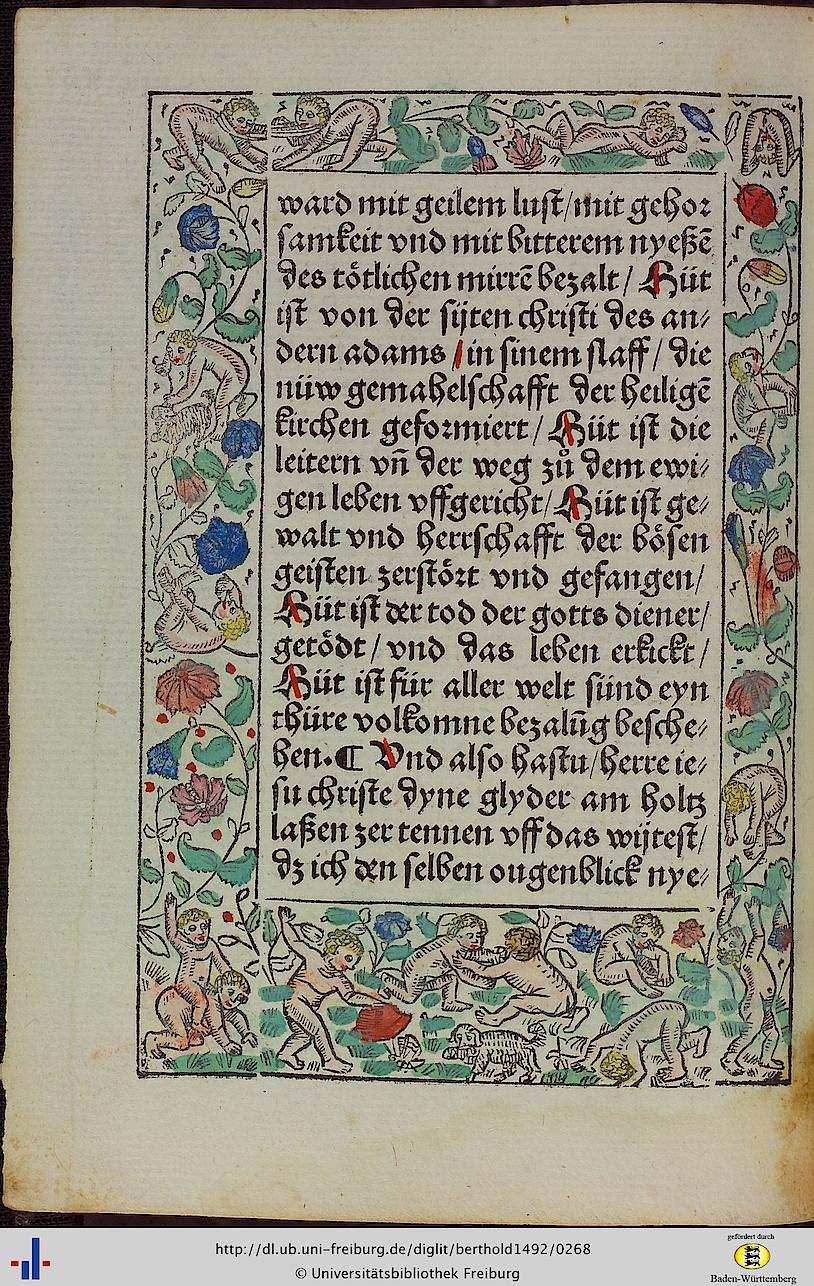 ward mit geilem lust/mit gehor
samkeit vnd mit bitterem nyeßē
des tötlichen mirrē bezalt/ Hüt
ist von der sijten christi des an⸗
dern adams /in sinem slaff/ die
nüw gemahelschafft der heiligē
kirchen geformiert/ Hüt ist die
leitern vn̄ der weg zuͦ dem ewi⸗
gen leben vffgericht/ Hüt ist ge⸗
walt vnd herrschafft der bösen
geisten zerstört vnd gefangen/
Hüt ist der tod der gotts diener/
getödt/ vnd das leben erkickt/
Hüt ist für aller welt sünd eyn
thüre volkomne bezalūg besche⸗
hen. ¶ Vnd also hastu/herre ie⸗
su christe dyne glyder am holtz
laßen zer tennen vff das wijtest/
dz ich den selben ougenblick nye⸗
http://dl.ub.uni-freiburg.de/diglit/berthold1492/0268
© Universitätsbibliothek Freiburg
gefördert durch
Baden-Württemberg